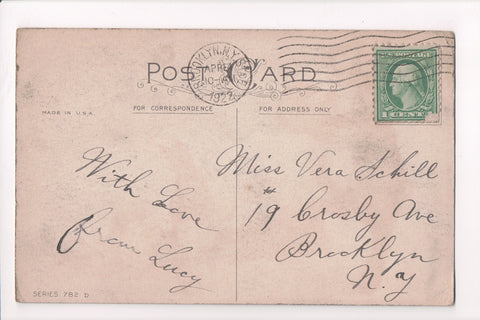 BROOKLYN, N.Y.
APR
1922
POST CARD
U.S. POSTAGE
1 CENT 1
MADE IN U.S.A.
FOR CORRESPONDENCE
FOR ADDRESS ONLY
With Love
from Lucy
Miss Vera Schill
# 19 Crosby Ave
Brooklyn
N.Y
SERIES 782 D